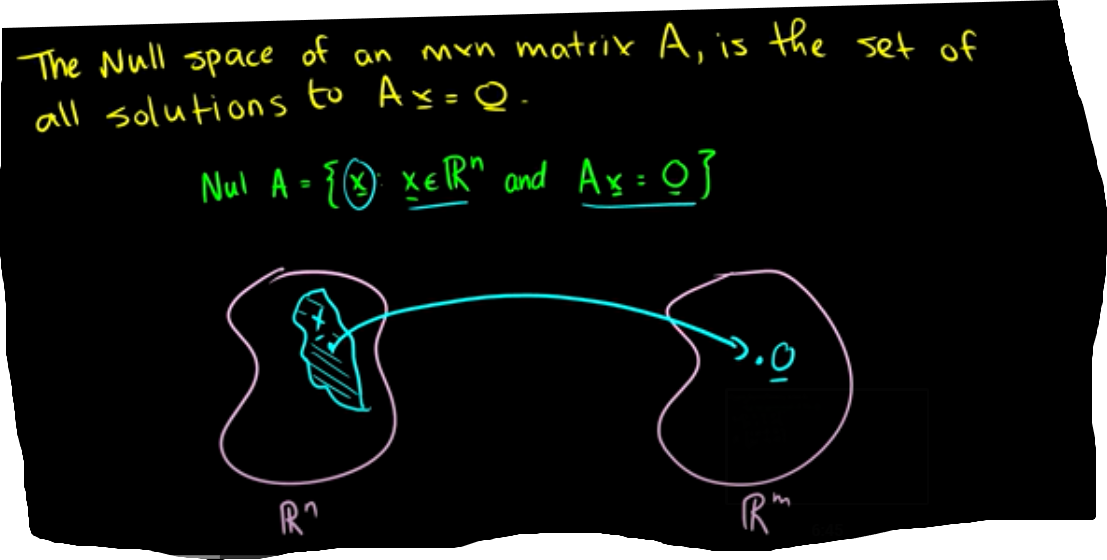 The Null space of an mxn matrix A, is the set of
all solutions to A x = 0.
Nul A = { x : x ∈ ℝⁿ and A x = 0 }
. 0
ℝⁿ
ℝᵐ